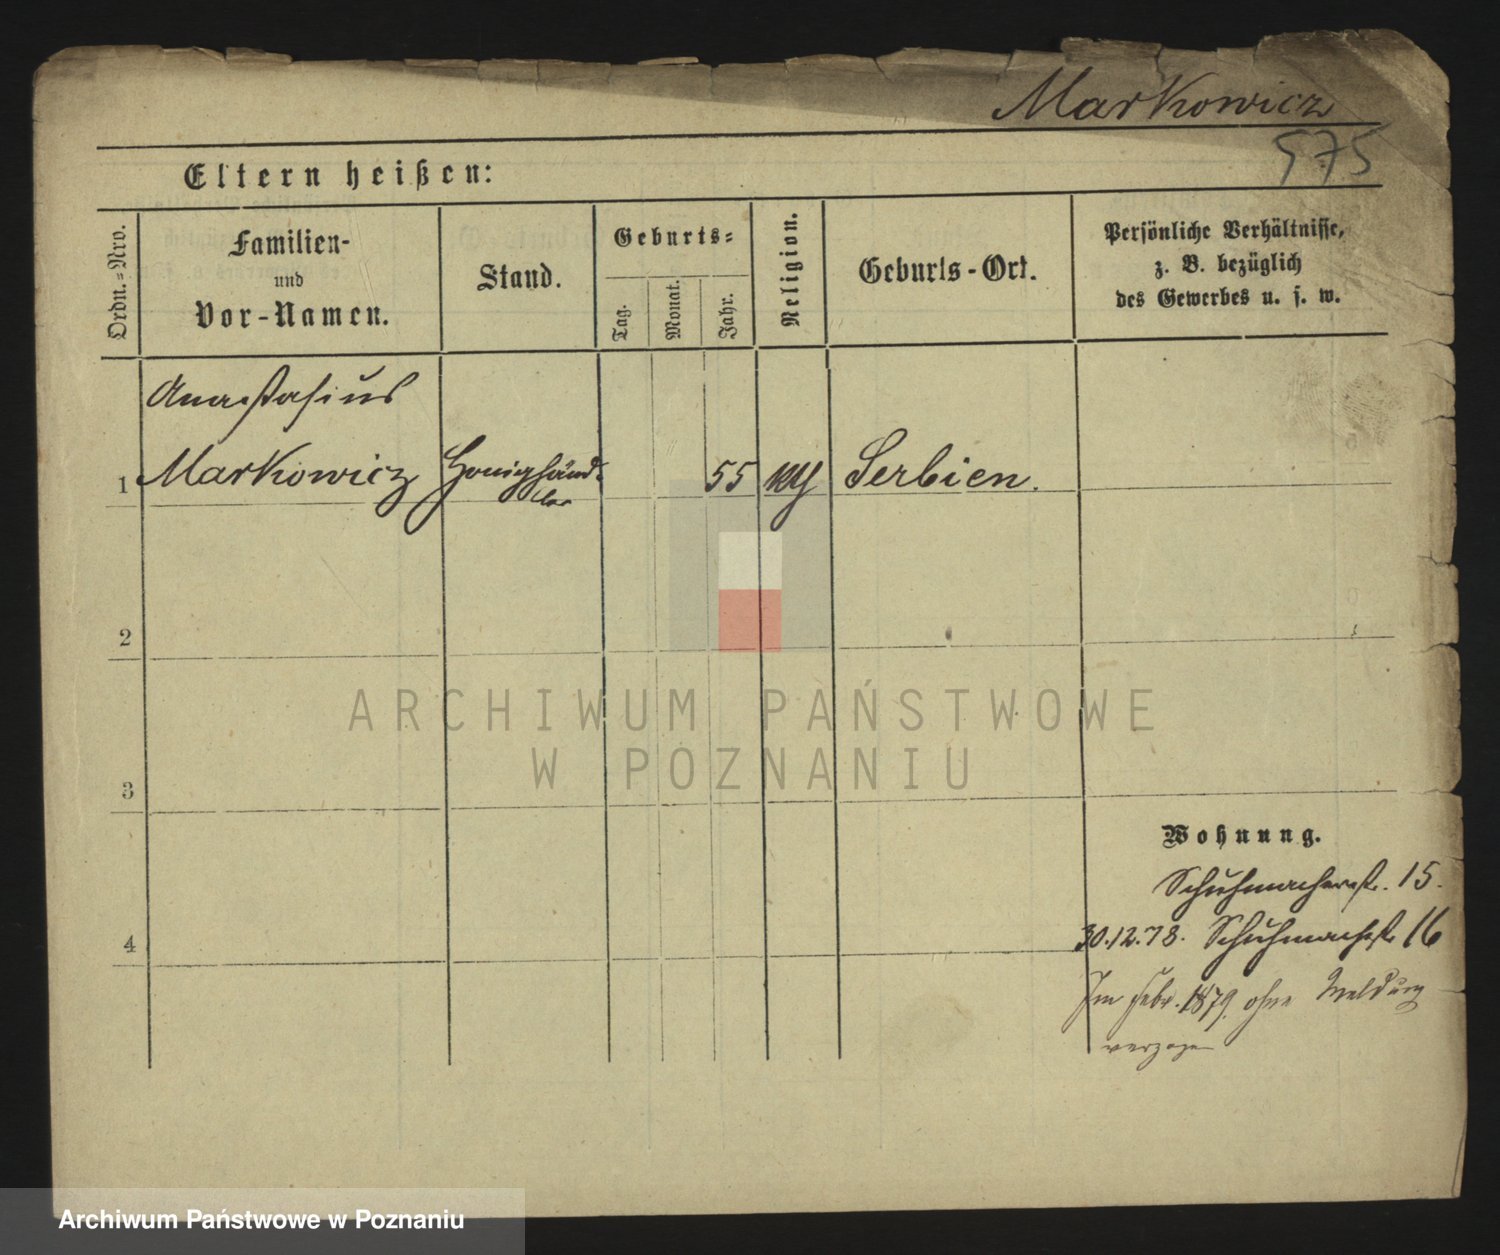 Markowicz
575
Eltern heißen:
Ordn.=Nro.
Familien-
und
Vor-Namen.
Stand.
Geburts=
Tag.
Monat.
Jahr.
Religion.
Geburts-Ort.
Persönliche Verhältnisse,
z. B. bezüglich
des Gewerbes u. s. w.
Anastasius
1 Markowicz Honighänd-
ler
55 Serbien.
2
ARCHIWUM PAŃSTWOWE
W POZNANIU
3
Wohnung.
Schuhmacherstr. 15.
4 30.12.78. Schuhmachstr 16
Im Febr. 1879. ohne Meldung
verzogen
Archiwum Państwowe w Poznaniu